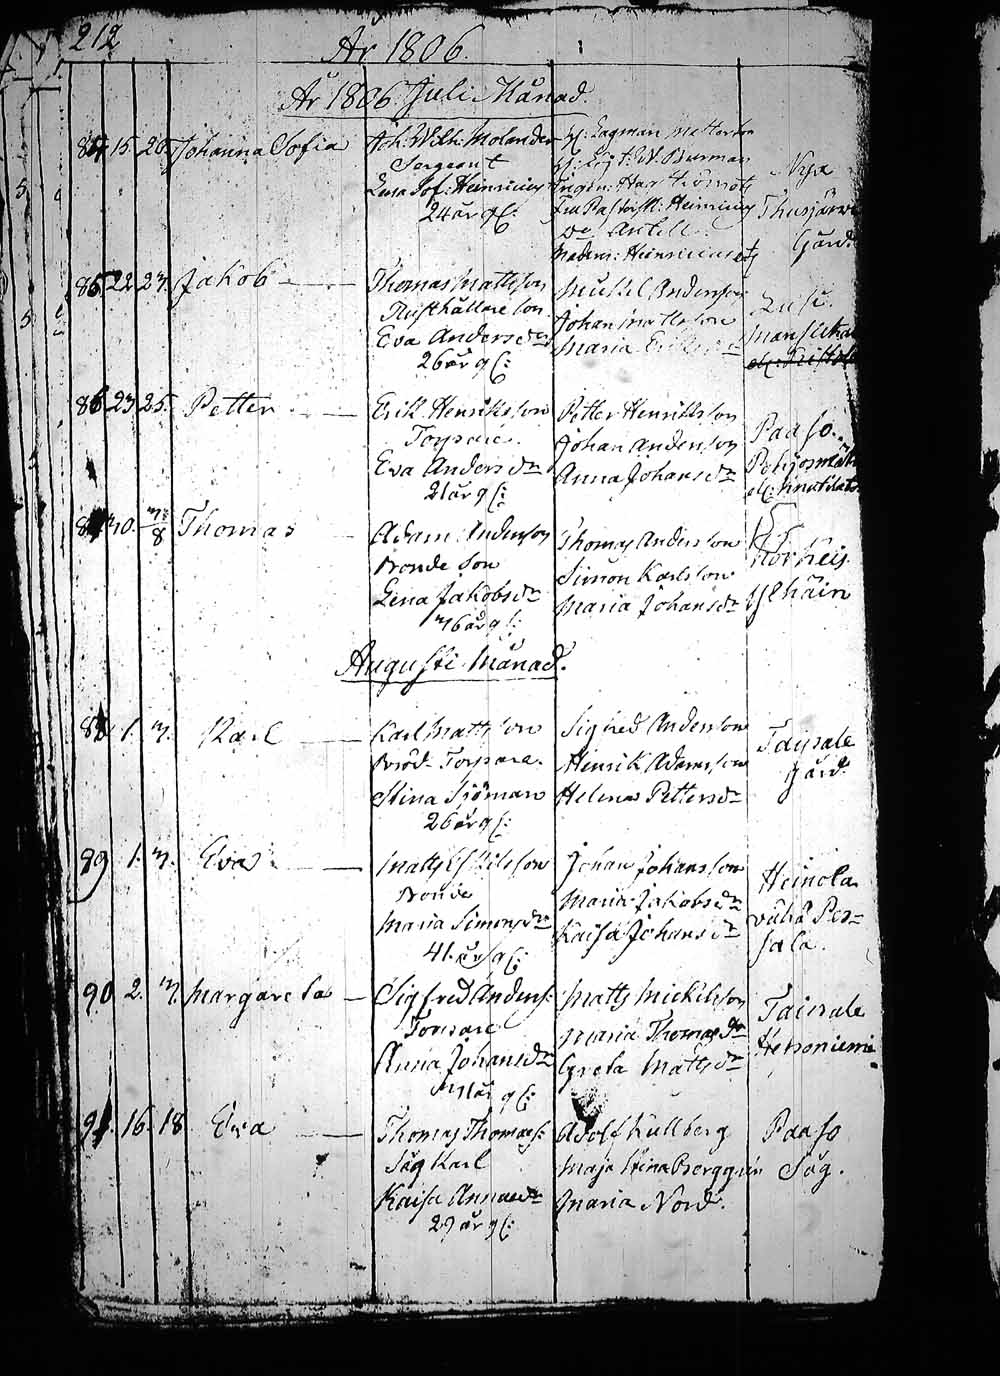 212
År 1806.
År 1806 Juli Månad.
84 15. 20. Johanna Sofia
Joh: Wilh: Molander
Sergeant
Lena Sof: Heinricius
24 år gl:
H: Lagman
H: W. Burman
Heinricius
Madem: Heinricius
Nya
Thusjärvi
Gård.
85 22 27. Jakob
Thomas Mattsson
Rusthållare son
Eva Andersdr
26 år gl:
Michel Andersson
Johan Mattsson
Maria
Lusi
86 23 25. Petter
Erik Henriksson
Torpare.
Eva Andersdr
21 år gl:
Petter Henriksson
Johan Andersson
Anna Johansdr
Paaso.
87 30. 3/8 Thomas
Adam Andersson
Bonde son
Lena Jakobsdr
36 år gl:
Thomas Andersson
Simon Karlsson
Maria Johansdr
Korkeis
Ylhäin
Augusti Månad.
88 1. 3. Karl
Karl Mattsson
Torpare.
Stina Sjöman
26 år gl:
Sigfred Andersson
Henrik Adamsson
Helena Pettersdr
Taipale
gård.
89 1. 3. Eva
Matts Eskilsson
Bonde
Maria Simonsdr
41. år gl:
Johan Johansson
Maria Jakobsdr
Kaisa Johansdr
Heinola
vähä Per=
sala.
90 2. 3. Margareta
Sigfred Anders:
Torpare
Anna Johansdr
31 år gl:
Matts Mickelsson
Maria Thomasdr
Greta Mattsdr
Taipale
Hetoniemi
91. 16. 18. Eva
Thomas Thomass:
Såg Karl
Kaisa Annaedr
29 år gl:
Adolf Kullberg
Maja Stina Berggrén
Maria Nord.
Paaso
Såg.